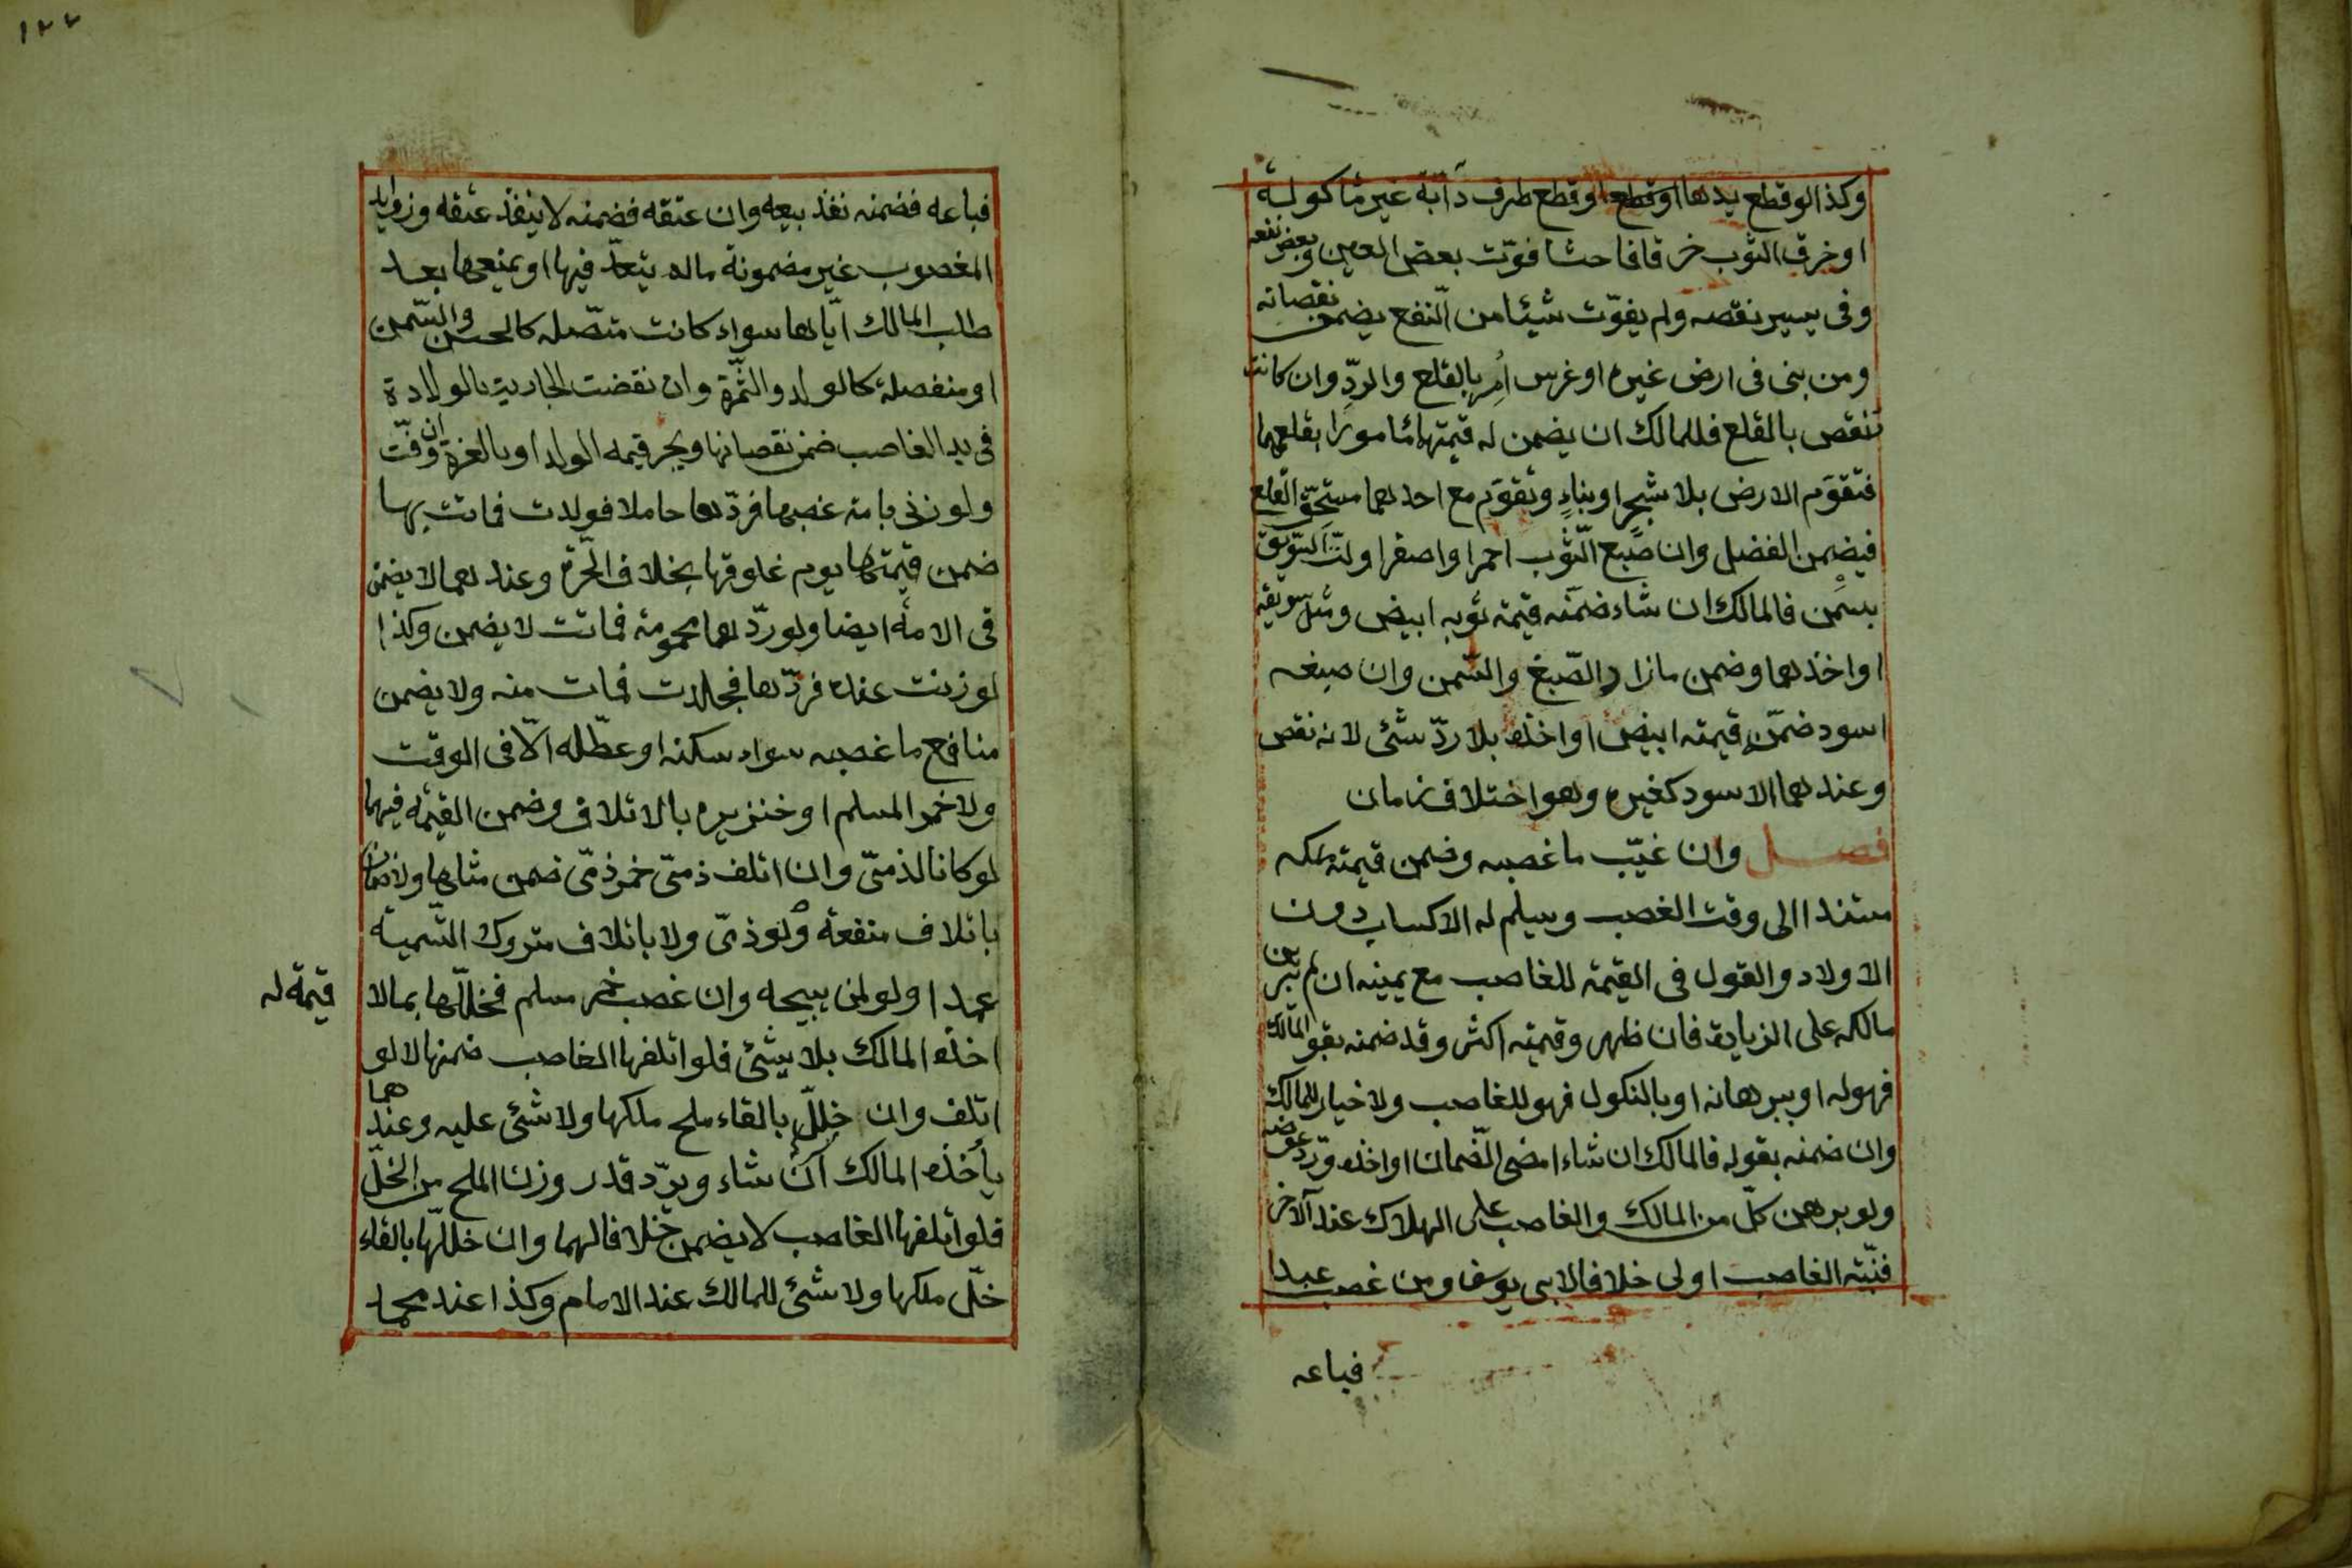 وكذا لو قطع يدها او قطع او قطع طرف دآبة غير مأكولة
او خرق الثوب خرقا فاحشا فوّت بعض العين وبعض نفعه
وفى يسير نقصه ولم يفوّت شيئا من النّفع يضمن نقصانه
ومن بنى فى ارض غيره او غرس اُمِر بالقلع والردّ وان كانت
تنقص بالقلع فللمالك ان يضمن له قيمتهما مأمورا بقلعهما
فتقوّم الارض بلا شجر او بناءٍ وتقوّم مع احدهما مستحقّ القلع
فيضمن الفضل وان صبغ الثّوب احمرا واصفرا ولتّ السّويق
بسمن فالمالك ان شاء ضمّنه قيمة ثوبه ابيض ومثل سويقه
او اخذهما وضمن ما زاد الصّبغ والسّمن وان صبغه
اسود ضمّن قيمته ابيض او اخذه بلا ردّ شئ لانه نقص
وعندهما الاسود كغيره وهو اختلاف زمان
فصل وان غيّب ما غصبه وضمن قيمته ملكه
مستندا الى وقت الغصب وسلم له الاكساب دون
الاولاد والقول فى القيمة للغاصب مع يمينه ان لم يبرهن
مالكه على الزيادة فان ظهر وقيمته اكثر وقد ضمنه بقول المالك
فهو له او ببرهانه او بالنكول فهو للغاصب ولا خيار للمالك
وان ضمنه بقوله فالمالك ان شاء امضى الضّمان او اخذه وردّ عوضه
ولو برهن كلّ من المالك والغاصب على الهلاك عند الآخر
فبيّنة الغاصب اولى خلافا لابى يوسف ومن غصب عبدا
فباعه
١٢٧
فباعه فضمنه نفذ بيعه وان عتقه فضمنه لا ينفذ عتقه وزوايد
المغصوب غير مضمونة ما لم يتعدّ فيها او يمنعها بعد
طلب المالك ايّاها سواء كانت متّصله كالحسن والسّمن
او منفصلة كالولد والثّمرة وان نقضت الجارية بالولادة
فى يد الغاصب ضمن نقصانها ويجبر قيمه الولد او بالغرة ان وفّت
ولو زنى بامة غصبها فردّها حاملا فولدت فماتت بها
ضمن قيمتها يوم علوقها بخلاف الحرّة وعندهما لا يضمن
فى الامة ايضا ولو ردّها محمومة فماتت لا يضمن وكذا
لو زنت عنده فردّها فجلدت فماتت منه ولا يضمن
منافع ما غصبه سواء سكنه او عطّله الّا فى الوقت
ولا خمر المسلم او خنزيره بالاتلاف وضمن القيمة فيهما
لو كانا لذمّىّ وان اتلف ذمّى خمر ذمّى ضمن مثلها ولا ضمان
باتلاف منفعة ولو ذمّى ولا باتلاف متروك التّسمية
عمدا ولو لمن يبيحه وان غصب خمر مسلم فخلّلها بما لا
قيمة له
اخذه المالك بلا شئ فلو اتلفها الغاصب ضمنها لا لو
اتلف وان خلّل بالقاء ملح ملكها ولا شئ عليه وعندهما
يأخذه المالك ان شاء ويردّ قدر وزن الملح من الخلّ
فلو اتلفها الغاصب لا يضمن خلافا لهما وان خلّلها بالقاء
خلّ ملكها ولا شئ للمالك عند الامام وكذا عند محمد